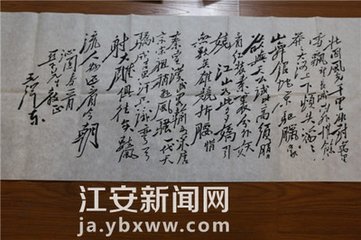 北国风光千里冰封万里
雪飘望长城内外惟余
莽莽大河上下顿失滔滔
山舞银蛇原驰蜡象
欲与天公试比高须晴
日看红装素裹分外妖
娆江山如此多娇引
无数英雄竞折腰惜
秦皇汉武略输文采唐
宗宋祖稍逊风骚一代天
骄成吉思汗只识弯弓
射大雕俱往矣数风
流人物还看今朝
沁园春
毛泽东
江安新闻网
ja.ybxww.com